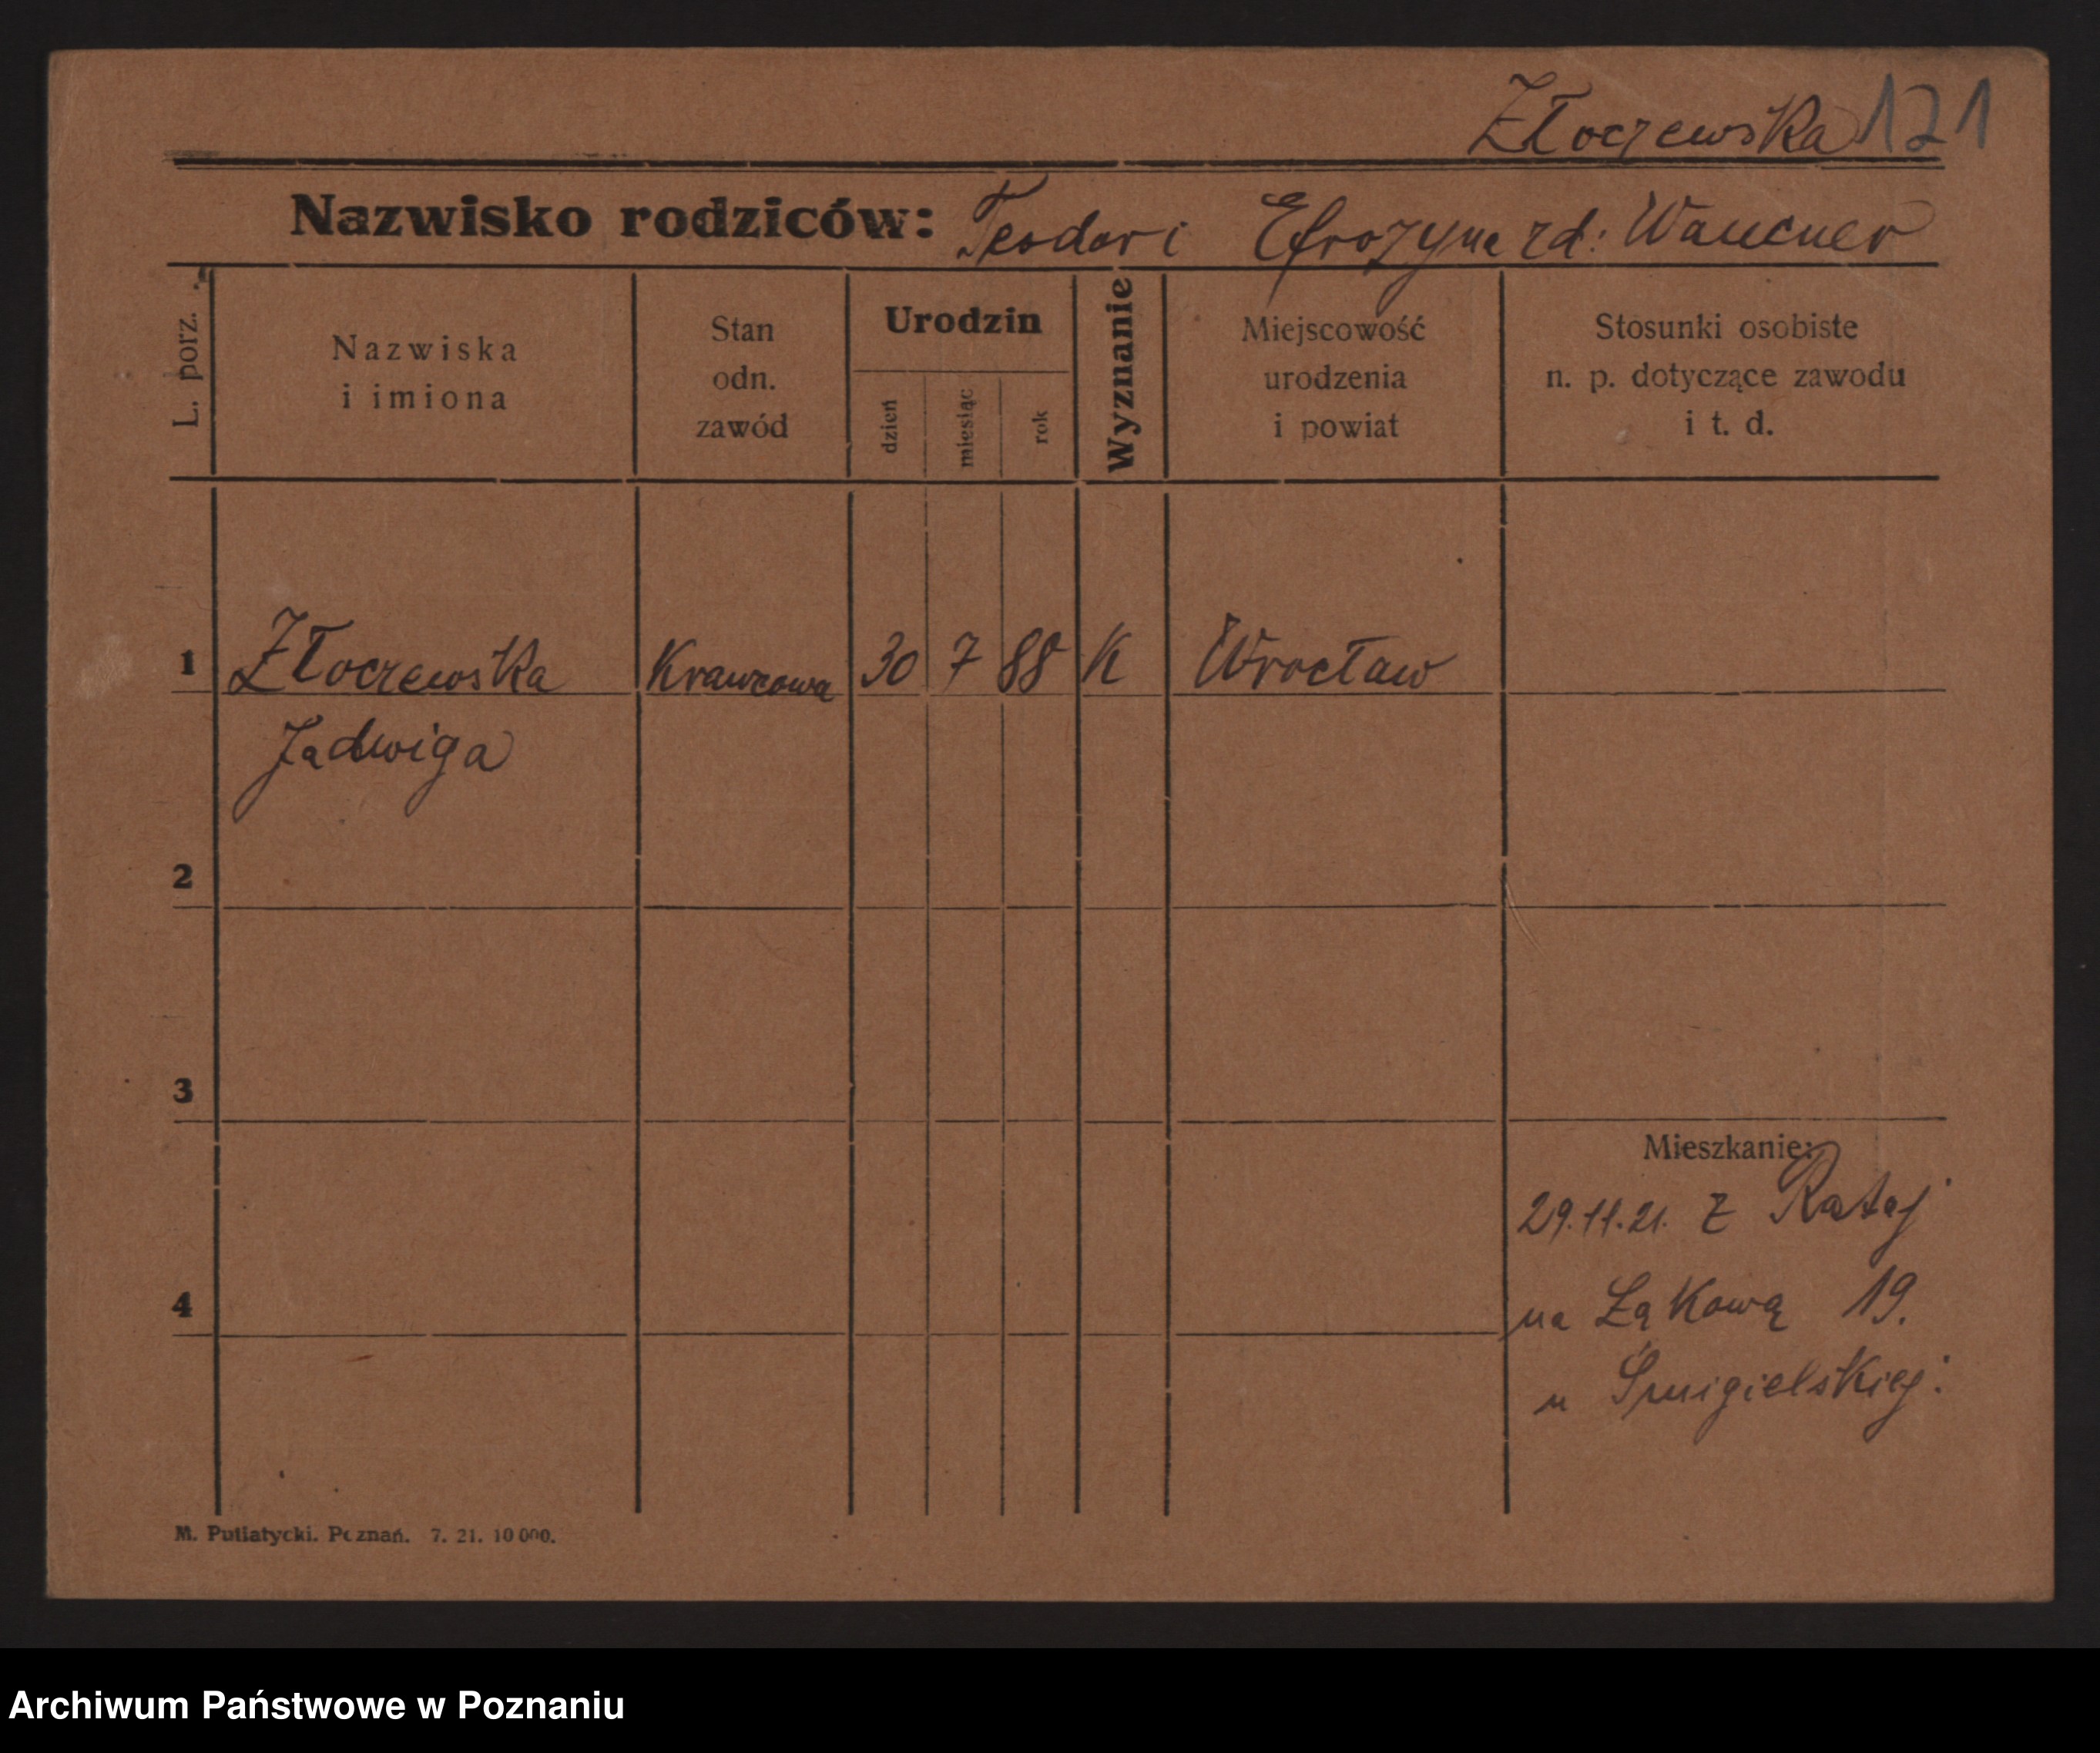 Złoczewska 121
Nazwisko rodziców: Teodor i Efrozyna zd:
L. porz.
Nazwiska
i imiona
Stan
odn.
zawód
Urodzin
dzień
miesiąc
rok
Wyznanie
Miejscowość
urodzenia
i powiat
Stosunki osobiste
n. p. dotyczące zawodu
i t. d.
1 Złoczewska Krawcowa 30 7 88 K Wrocław
Jadwiga
2
3
Mieszkanie:
29.11.21. z Rataj
na Łąkową 19.
4
u Śmigielskiej.
M. Putiatycki. Poznań. 7. 21. 10 000.
Archiwum Państwowe w Poznaniu